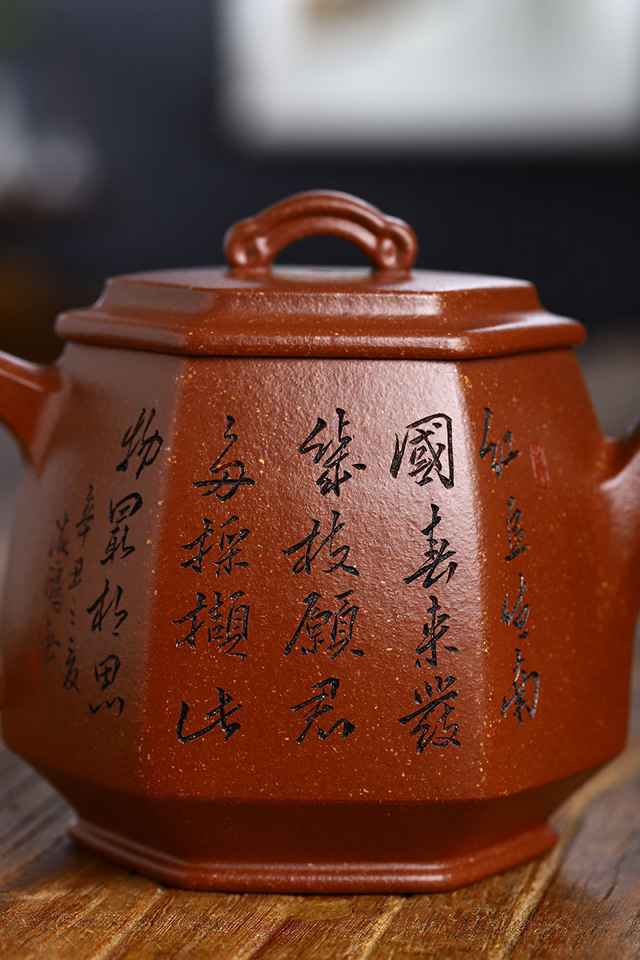 紅豆生南
國春來發
幾枝願君
多採擷此
物最相思
辛丑之夏